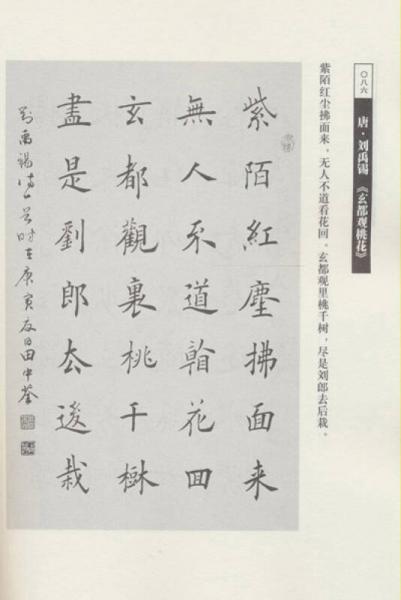 〇八六
唐·刘禹锡《玄都观桃花》
紫陌红尘拂面来，无人不道看花回。玄都观里桃千树，尽是刘郎去后栽。
紫陌紅塵拂面来
無人不道看花囬
玄都觀裏桃千樹
盡是劉郎去後栽
劉禹錫詩一首時在庚寅友日田中荃